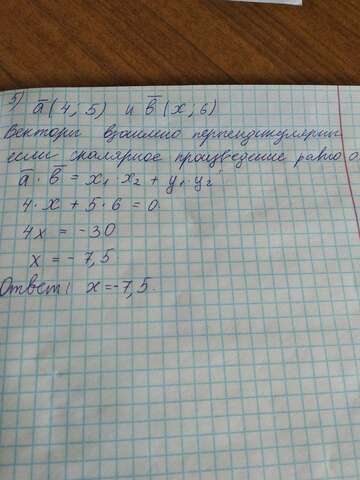 5) a̅(4; 5) и b̅(x; 6)
Векторы взаимно перпендикулярны
если скалярное произведение равно 0.
a̅ · b̅ = x₁ · x₂ + y₁ · y₂
4 · x + 5 · 6 = 0
4x = -30
x = -7,5
Ответ: x = -7,5.